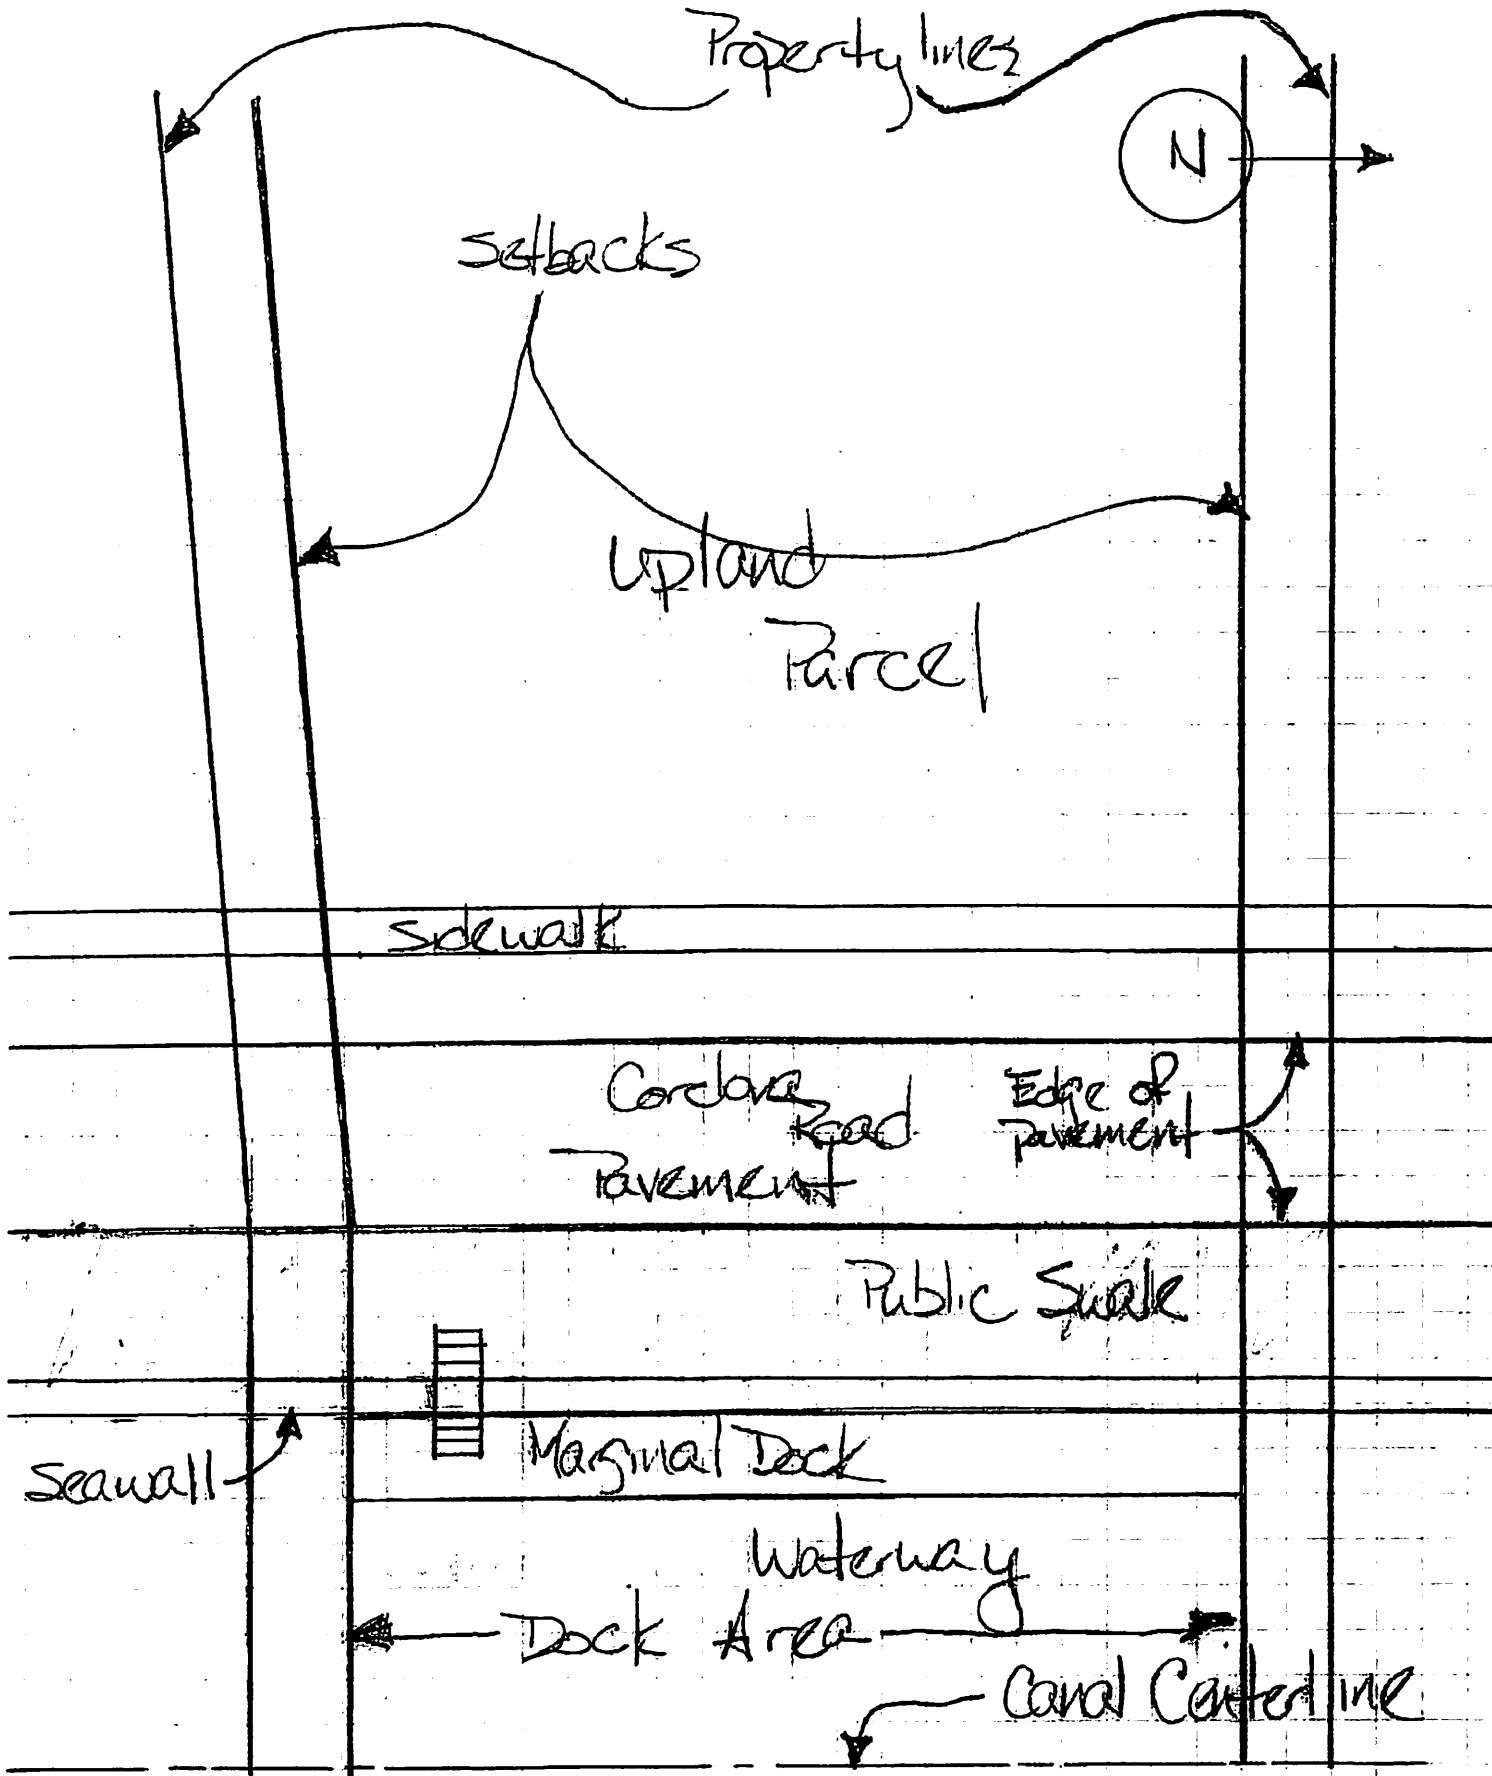 Property lines
N
Setbacks
Upland
Parcel
Sidewalk
Cordova
Road
Pavement
Edge of
pavement
Public Swale
Marginal Dock
Seawall
Waterway
Dock Area
Canal Centerline